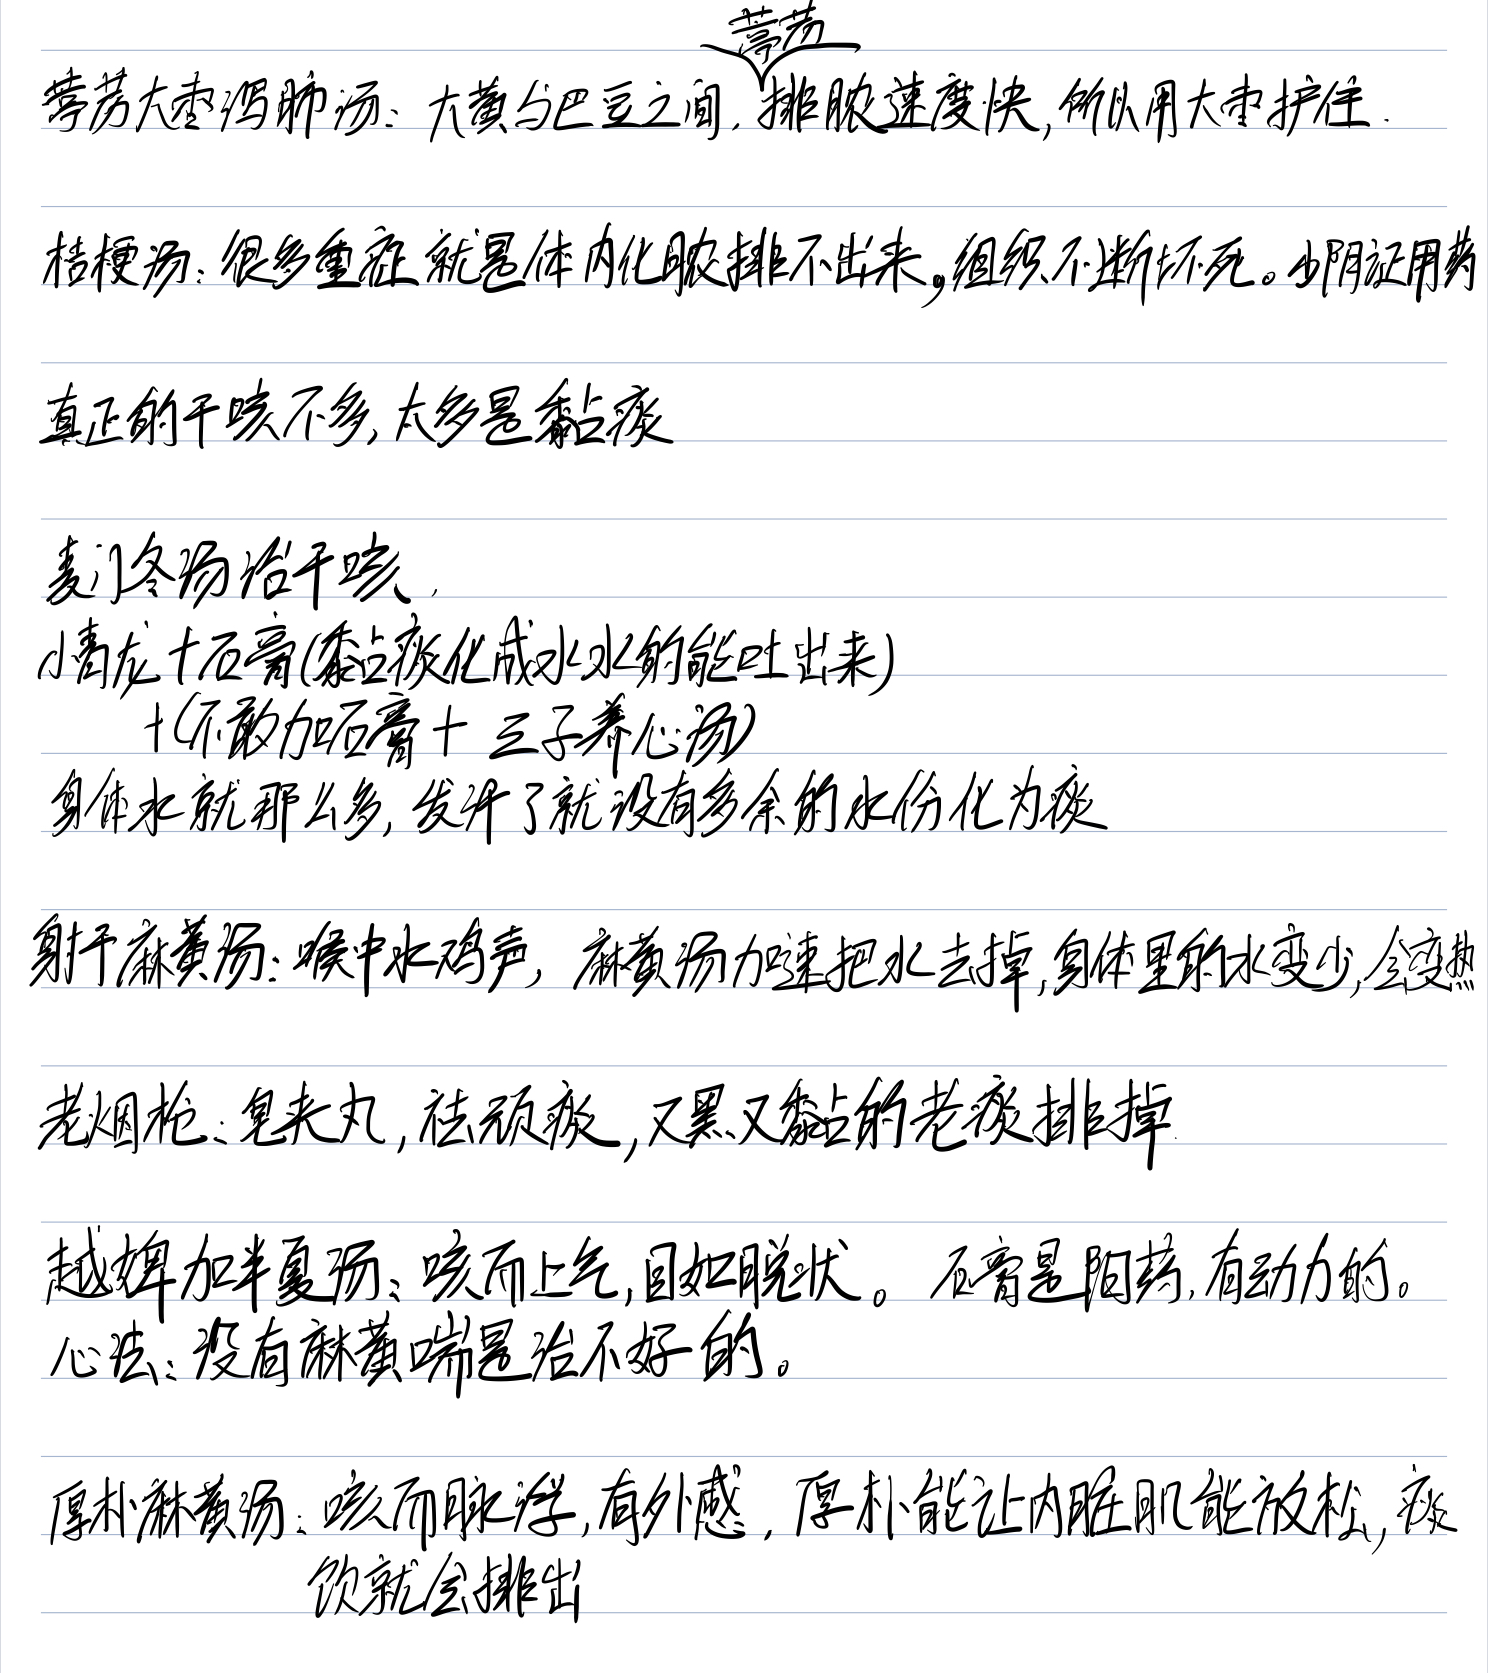 葶苈
葶苈大枣泻肺汤：大黄与巴豆之间，排脓速度快，所以用大枣护住.
桔梗汤：很多重症就是体内化脓排不出来，组织不断坏死。少阴证用药
真正的干咳不多，太多是黏痰
麦门冬汤治干咳，
小青龙+石膏(黏痰化成水水的能吐出来)
+(不敢加石膏+三子养心汤)
身体水就那么多，发汗了就没有多余的水份化为痰
射干麻黄汤：喉中水鸡声，麻黄汤加速把水去掉，身体里的水变少，会变热
老烟枪：皂夹丸，祛顽痰，又黑又黏的老痰排掉.
越婢加半夏汤：咳而上气，目如脱状。石膏是阳药，有动力的。
心法：没有麻黄喘是治不好的。
厚朴麻黄汤：咳而脉浮，有外感，厚朴能让内脏肌能放松，痰
饮就会排出